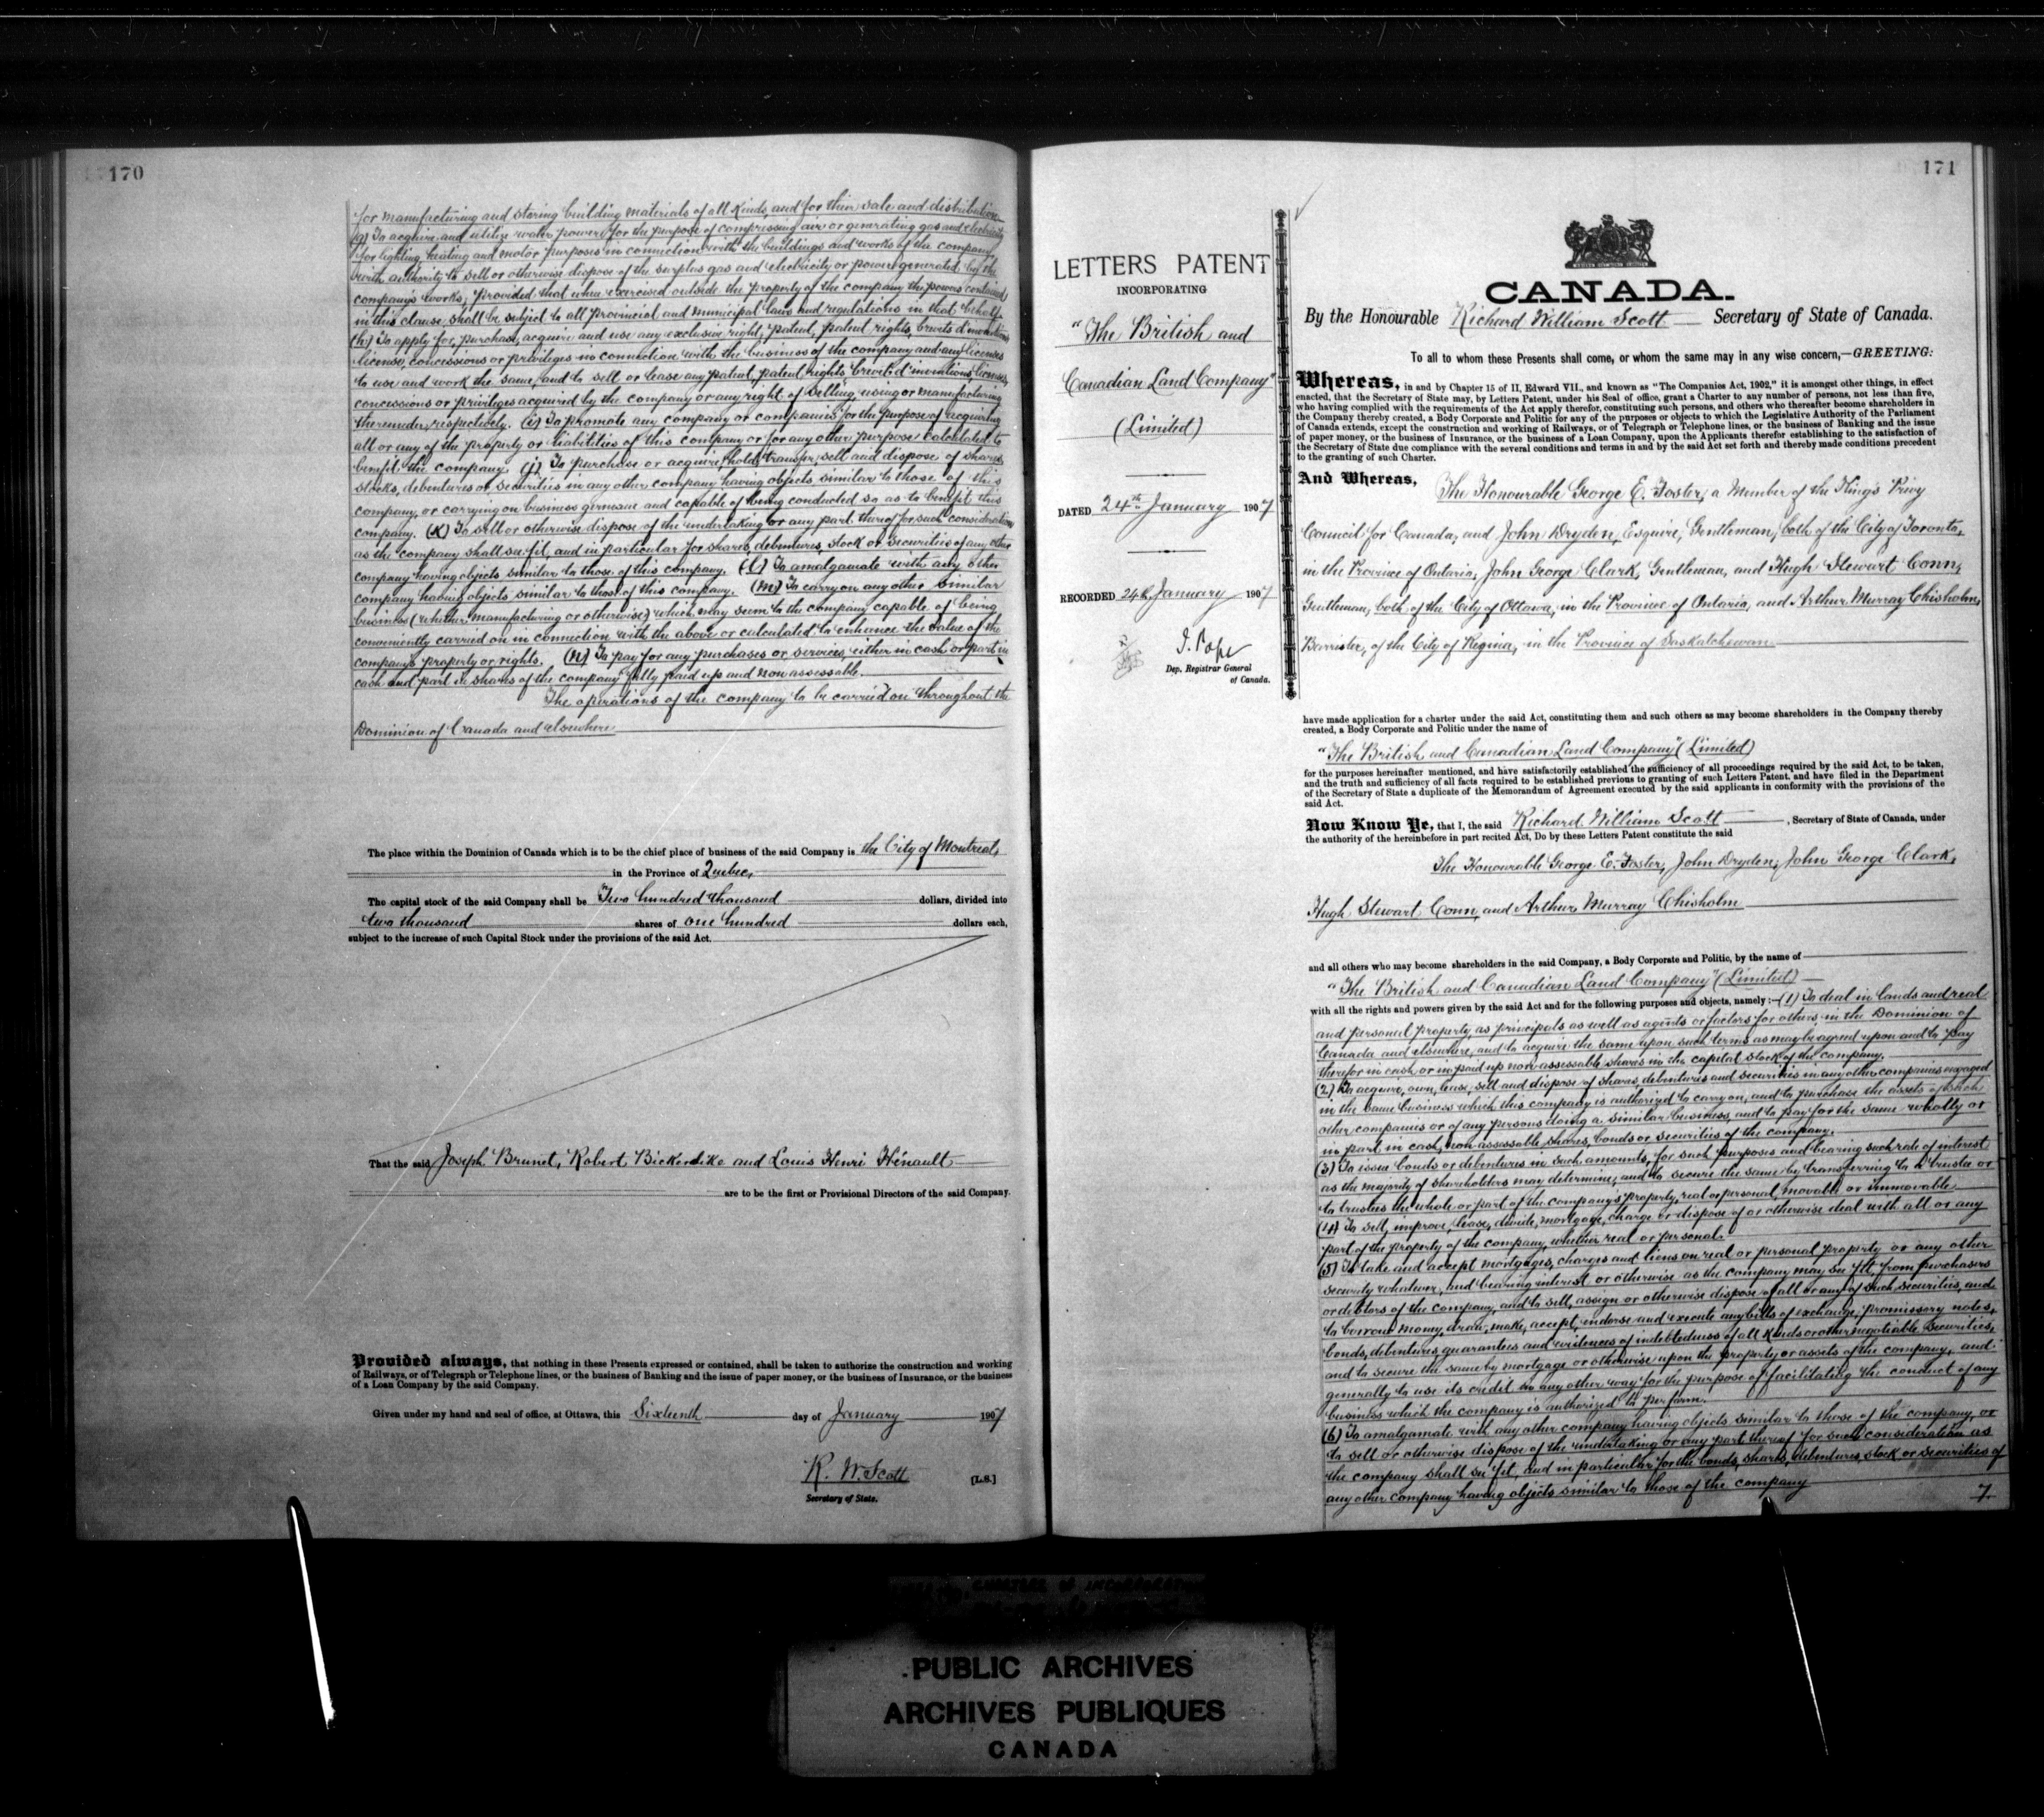 170
for manufacturing and storing building materials of all kinds, and for their sale and distribution
(g) To acquire and utilize water power for the purpose of compressing air or generating gas and electricity
for lighting, heating and motor purposes in connection with the buildings and works of the company,
with authority to sell or otherwise dispose of the surplus gas and electricity or power generated by the
company's works; provided that when exercised outside the property of the company the powers contained
in this clause shall be subject to all provincial and municipal laws and regulations in that behalf.
(h) To apply for, purchase, acquire and use any exclusive right, patent, patent rights, brevets d'invention,
license, concessions or privileges in connection with the business of the company and any licenses
to use and work the same, and to sell or lease any patent, patent rights, brevets d'invention, licenses,
concessions or privileges acquired by the company or any right of selling, using or manufacturing
thereunder, respectively. (i) To promote any company or companies for the purpose of acquiring
all or any of the property or liabilities of this company or for any other purpose calculated to
benefit the company. (j) To purchase or acquire, hold, transfer, sell and dispose of shares,
stocks, debentures or securities in any other company having objects similar to those of this
company, or carrying on business germane and capable of being conducted so as to benefit this
company. (k) To sell or otherwise dispose of the undertaking or any part thereof for such consideration
as the company shall see fit, and in particular for shares, debentures, stock or securities of any other
company having objects similar to those of this company. (l) To amalgamate with any other
company having objects similar to those of this company. (m) To carry on any other similar
business (whether manufacturing or otherwise) which may seem to the company capable of being
conveniently carried on in connection with the above or calculated to enhance the value of the
company's property or rights. (n) To pay for any purchases or services, either in cash or part in
cash and part in shares of the company fully paid up and non assessable.
The operations of the company to be carried on throughout the
Dominion of Canada and elsewhere
The place within the Dominion of Canada which is to be the chief place of business of the said Company is the City of Montreal,
in the Province of Quebec,
The capital stock of the said Company shall be Two hundred thousand dollars, divided into
two thousand shares of one hundred dollars each,
subject to the increase of such Capital Stock under the provisions of the said Act.
That the said Joseph Brunet, Robert Bickerdike and Louis Henri Hénault
are to be the first or Provisional Directors of the said Company.
Provided always, that nothing in these Presents expressed or contained, shall be taken to authorize the construction and working
of Railways, or of Telegraph or Telephone lines, or the business of Banking and the issue of paper money, or the business of Insurance, or the business
of a Loan Company by the said Company.
Given under my hand and seal of office, at Ottawa, this Sixteenth day of January 1907
R. W. Scott [L.S.]
Secretary of State.
171
LETTERS PATENT
INCORPORATING
"The British and
Canadian Land Company"
(Limited)
DATED 24th January 1907
RECORDED 24th January 1907
J. Pope
Dep. Registrar General
of Canada.
CANADA.
By the Honourable Richard William Scott Secretary of State of Canada.
To all to whom these Presents shall come, or whom the same may in any wise concern,—GREETING:
Whereas, in and by Chapter 15 of II, Edward VII., and known as "The Companies Act, 1902," it is amongst other things, in effect
enacted, that the Secretary of State may, by Letters Patent, under his Seal of office, grant a Charter to any number of persons, not less than five,
who having complied with the requirements of the Act apply therefor, constituting such persons, and others who thereafter become shareholders in
the Company thereby created, a Body Corporate and Politic for any of the purposes or objects to which the Legislative Authority of the Parliament
of Canada extends, except the construction and working of Railways, or of Telegraph or Telephone lines, or the business of Banking and the issue
of paper money, or the business of Insurance, or the business of a Loan Company, upon the Applicants therefor establishing to the satisfaction of
the Secretary of State due compliance with the several conditions and terms in and by the said Act set forth and thereby made conditions precedent
to the granting of such Charter.
And Whereas, The Honourable George E. Foster, a Member of the King's Privy
Council for Canada, and John Dryden, Esquire, Gentleman, both of the City of Toronto,
in the Province of Ontario, John George Clark, Gentleman, and Hugh Stewart Conn,
Gentleman, both of the City of Ottawa, in the Province of Ontario, and Arthur Murray Chisholm,
Barrister, of the City of Regina, in the Province of Saskatchewan
have made application for a charter under the said Act, constituting them and such others as may become shareholders in the Company thereby
created, a Body Corporate and Politic under the name of
"The British and Canadian Land Company" (Limited)
for the purposes hereinafter mentioned, and have satisfactorily established the sufficiency of all proceedings required by the said Act, to be taken,
and the truth and sufficiency of all facts required to be established previous to granting of such Letters Patent, and have filed in the Department
of the Secretary of State a duplicate of the Memorandum of Agreement executed by the said applicants in conformity with the provisions of the
said Act.
Now Know Ye, that I, the said Richard William Scott, Secretary of State of Canada, under
the authority of the hereinbefore in part recited Act, Do by these Letters Patent constitute the said
The Honourable George E. Foster, John Dryden, John George Clark,
Hugh Stewart Conn, and Arthur Murray Chisholm
and all others who may become shareholders in the said Company, a Body Corporate and Politic, by the name of
"The British and Canadian Land Company" (Limited)
with all the rights and powers given by the said Act and for the following purposes and objects, namely:—(1) To deal in lands and real
and personal property, as principals as well as agents or factors for others, in the Dominion of
Canada and elsewhere, and to acquire the same upon such terms as may be agreed upon and to pay
therefor in cash or in paid up non assessable shares in the capital stock of the company.
(2) To acquire, own, lease, sell and dispose of shares, debentures and securities in any other companies engaged
in the same business which this company is authorized to carry on, and to purchase the assets of such
other companies or of any persons doing a similar business, and to pay for the same wholly or
in part in cash, non-assessable shares, bonds or securities of the company.
(3) To issue bonds or debentures in such amounts, for such purposes and bearing such rate of interest
as the majority of shareholders may determine, and to secure the same by transferring to a trustee or
to trustees the whole or part of the company's property, real or personal, movable or immovable
(4) To sell, improve, lease, divide, mortgage, charge or dispose of or otherwise deal with all or any
part of the property of the company, whether real or personal.
(5) To take and accept mortgages, charges and liens on real or personal property or any other
security whatever, and bearing interest or otherwise as the company may see fit, from purchasers
or debtors of the company, and to sell, assign or otherwise dispose of all or any of such securities, and
to borrow money, draw, make, accept, endorse and execute any bills of exchange, promissory notes,
bonds, debentures, guarantees and evidences of indebtedness of all kinds or other negotiable securities,
and to secure the same by mortgage or otherwise upon the property or assets of the company, and
generally to use its credit in any other way for the purpose of facilitating the conduct of any
business which the company is authorized to perform.
(6) To amalgamate with any other company having objects similar to those of the company, or
to sell or otherwise dispose of the undertaking or any part thereof for such consideration as
the company shall see fit, and in particular for the bonds, shares, debentures, stock or securities of
any other company having objects similar to those of the company
7
PUBLIC ARCHIVES
ARCHIVES PUBLIQUES
CANADA